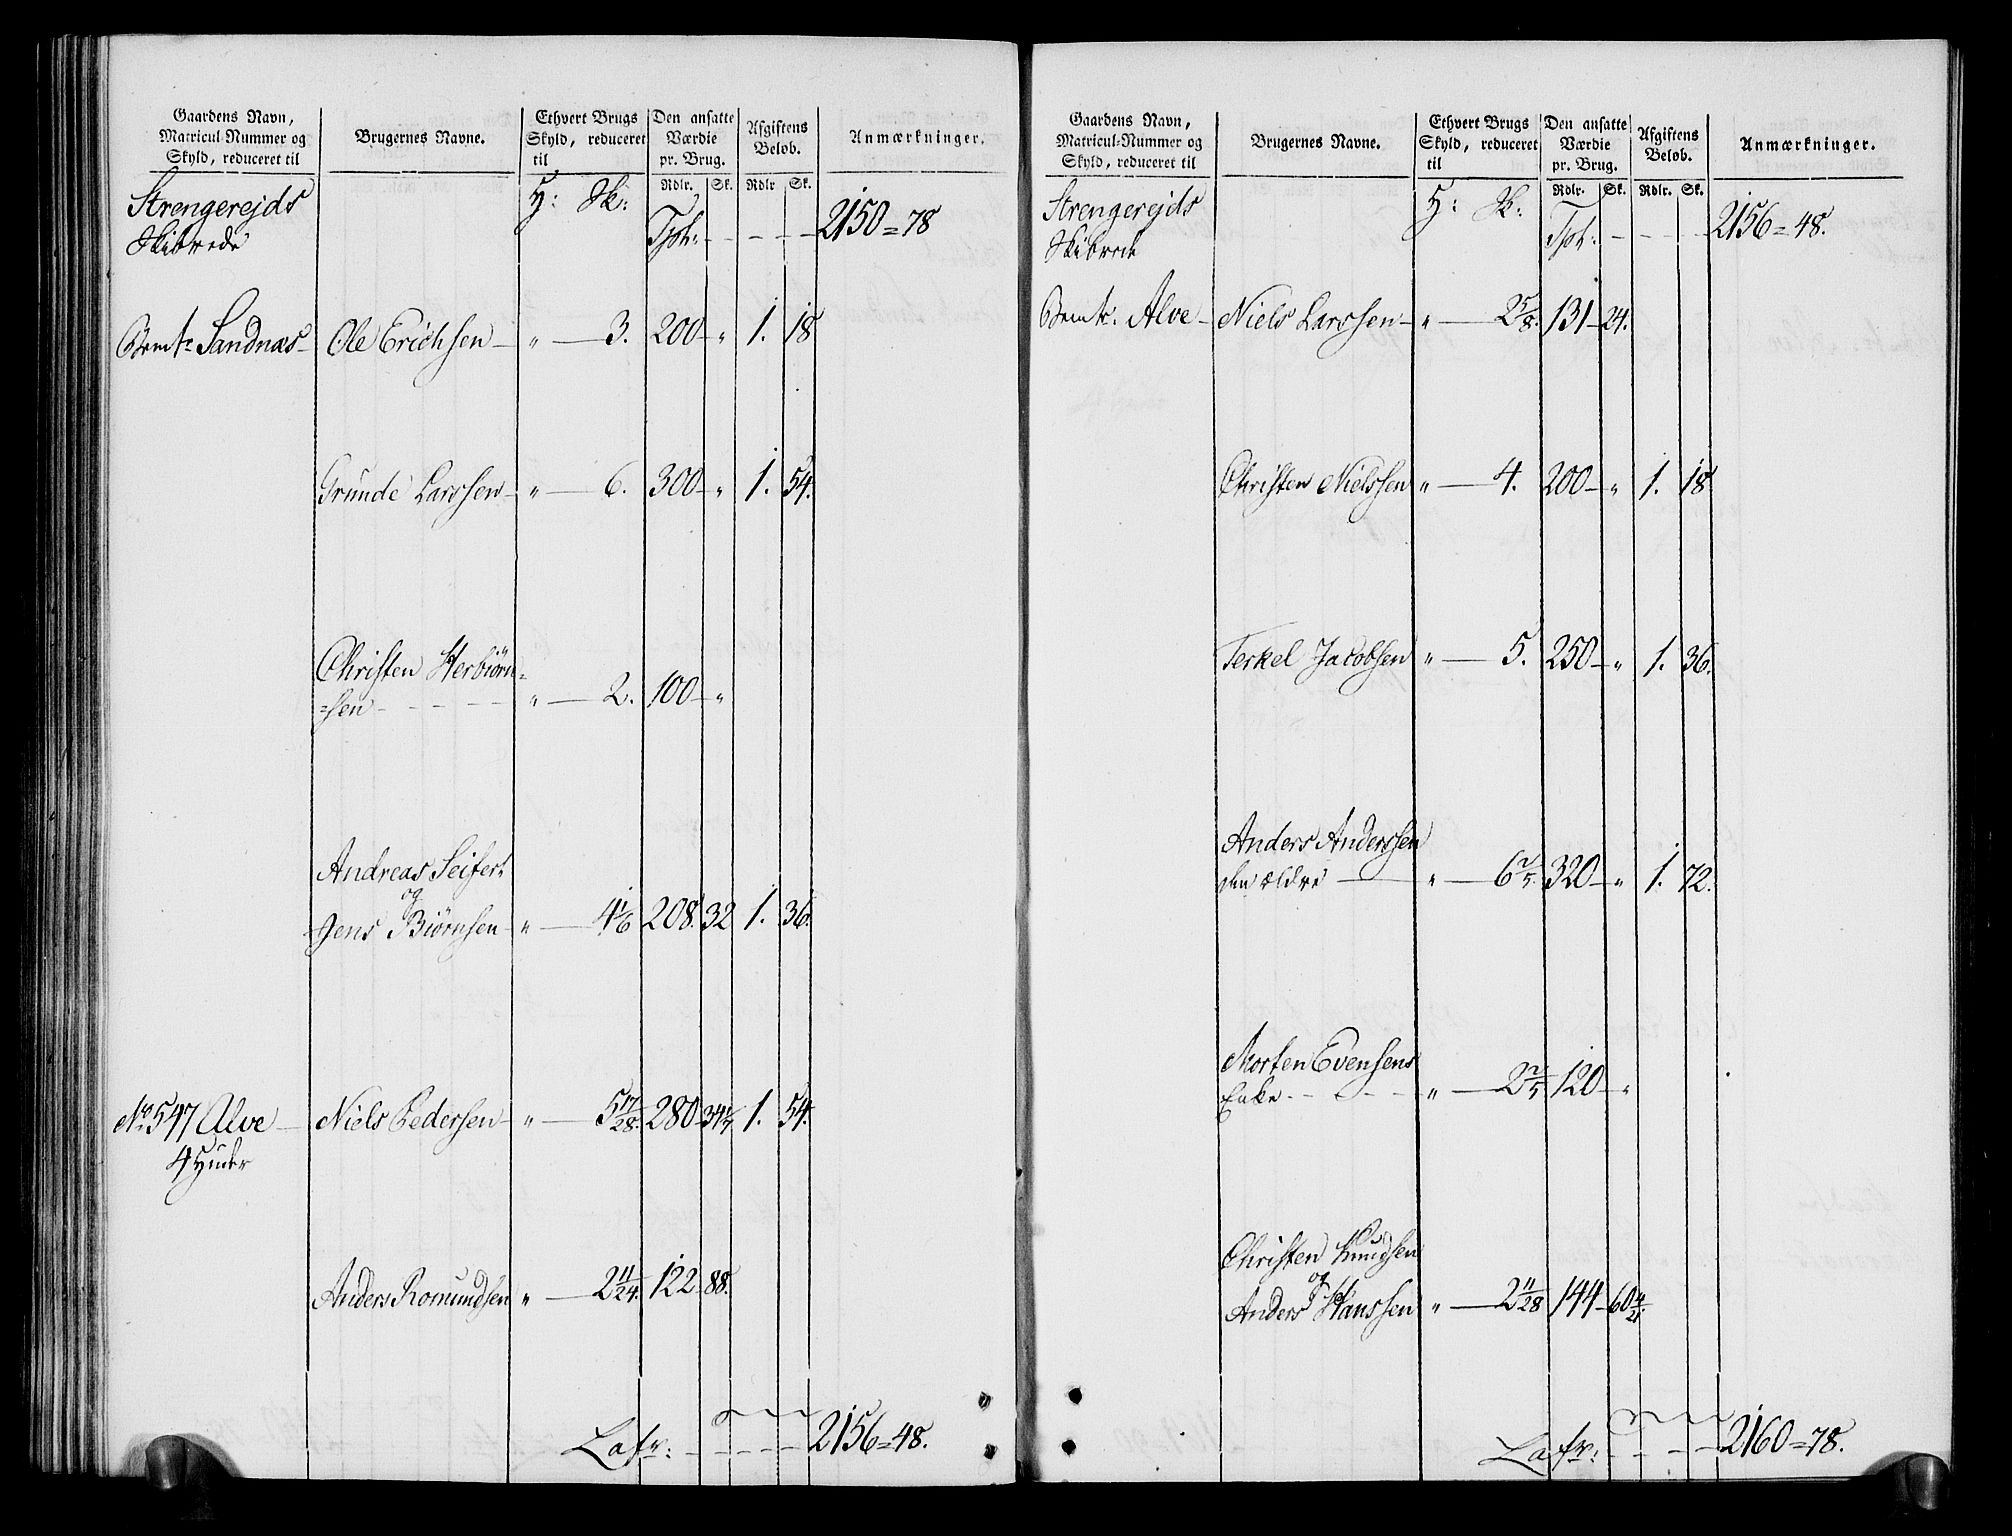 Gaardens Navn,
Matricul-Nummer og
Skyld, reduceret til
Brugernes Navne.
Ethvert Brugs
Skyld, reduceret
til
Den ansatte
Værdie
pr. Brug.
Afgiftens
Beløb.
Anmærkninger.
Rdlr. Sk. Rdlr Sk.
Strengerejds
Skibrede
H: Sk:
Tpt: - - - - 2150 = 78
Bemte Sandnæs - Ole Erichsen - " - 3. 200 - " 1. 18
Grunde Larssen - " - 6. 300 - " 1. 54.
Christen Herbiørn=
=sen - - - - - " - 2. 100 - "
Andreas Seifert
og
Jens Biørnsen - " - 4 1/6 208. 32 1. 36.
No 547 Alve - Niels Pedersen - " - 5 17/28. 280 - 34 2/7 1. 54.
4 Huder
Anders Romundsen " - 2 11/24. 122 - 88.
Lafr: - - - - 2156 = 48.
Gaardens Navn,
Matricul-Nummer og
Skyld, reduceret til
Brugernes Navne.
Ethvert Brugs
Skyld, reduceret
til
Den ansatte
Værdie
pr. Brug.
Afgiftens
Beløb.
Anmærkninger.
Rdlr. Sk. Rdlr. Sk.
Strengerejds
Skibrede
H: Sk:
Tpt: - - - - 2156 = 48.
Bemte. Alve - Niels Larssen - " - 2 5/8. 131 - 24.
Christen Nielssen " - 4. 200 - " 1. 18
Terkel Jacobsen " - 5. 250 - " 1. 36.
Anders Anderssen
den ældre - " - 6 2/5. 320 - " 1. 72.
Morten Evensens
Enke - - - - " - 2 2/5 120 - "
Christen Knudsen
og
Anders Hanssen " - 2 11/28 144 - 60 4/21.
Lafr: - - - - 2160 = 78.